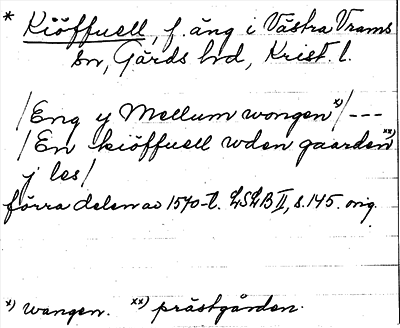 * Kiöffuell, f. äng i Västra Vrams
sn, Gärds hd, Krist. l.
/Eng y Mellum wongen x)/ ---
/En kiöffuell wden gaarden xx)
j les/
förra delen av 1570-t. LSLB II, s. 145. orig.
x) wangen. xx) prästgården.